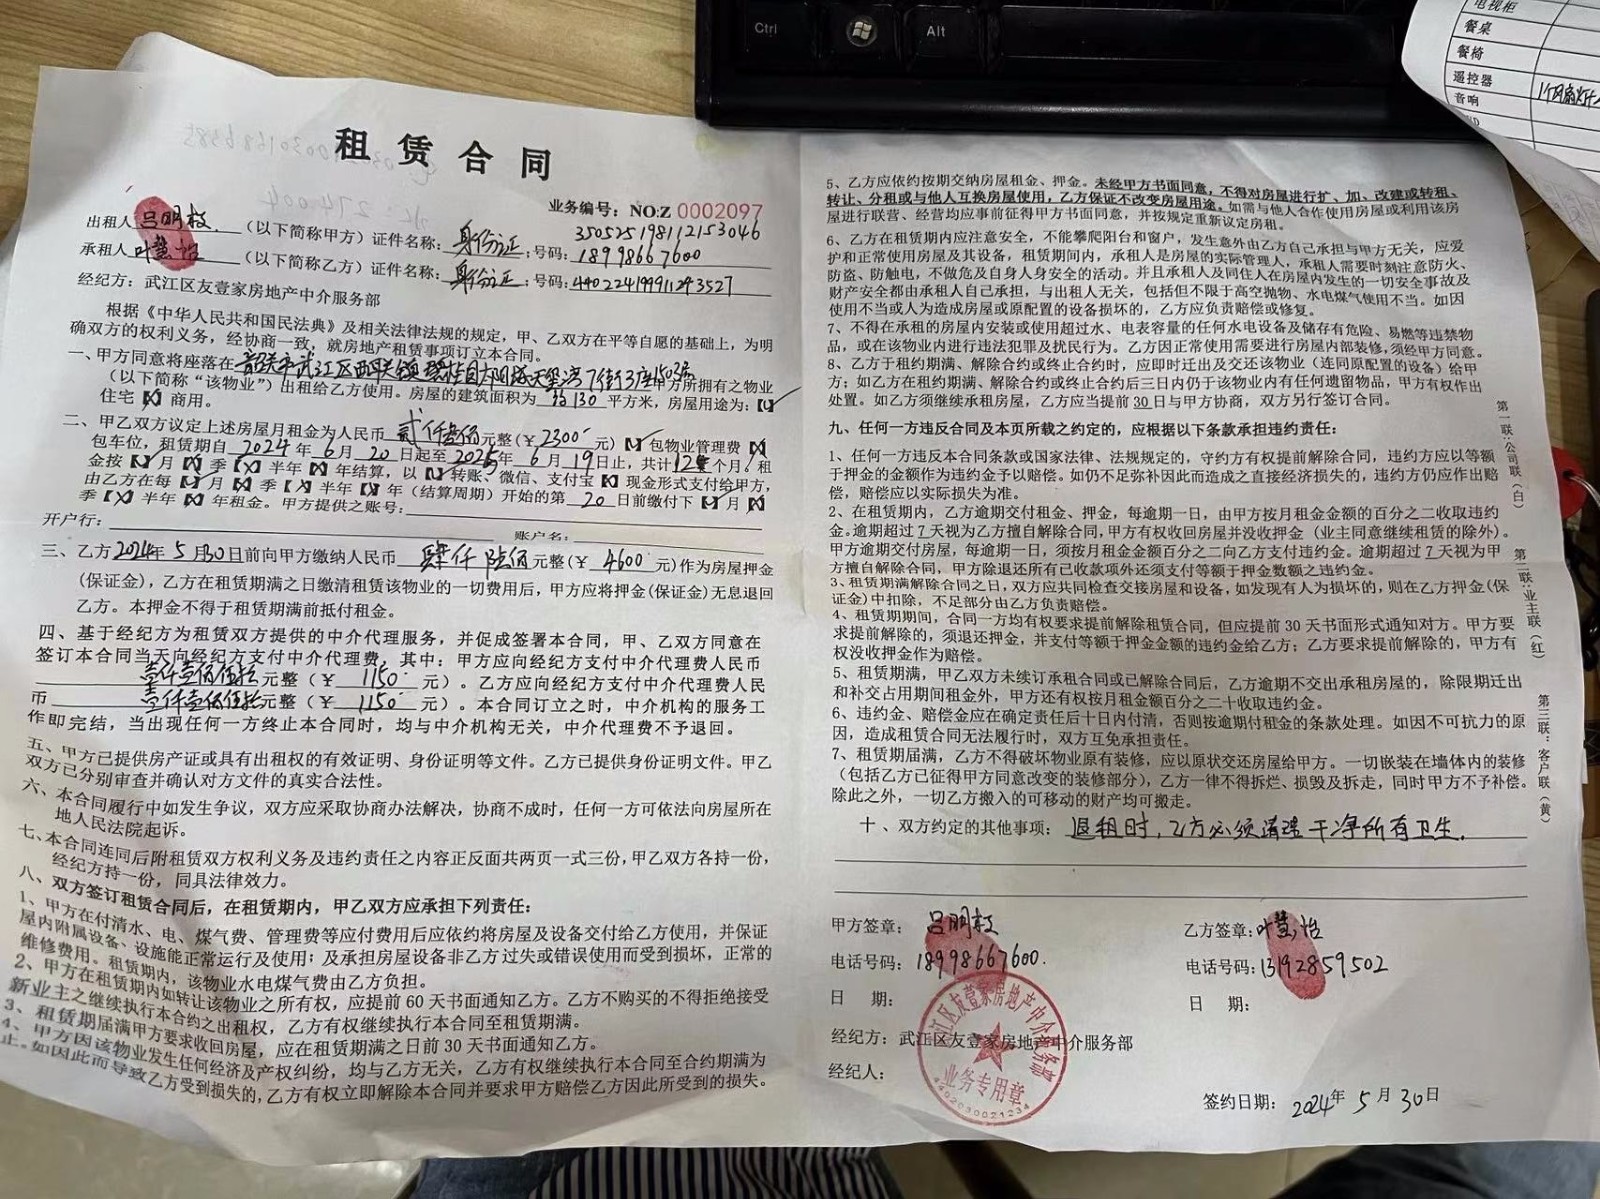 Ctrl
Alt
电视柜
餐桌
餐椅
遥控器
音响
租赁合同
业务编号：NO:Z 0002097
350525198112153046
出租人吕明枝（以下简称甲方）证件名称：身份证；号码：18998667600
承租人叶慧怡（以下简称乙方）证件名称：身份证；号码：440224199911293527
经纪方：武江区友壹家房地产中介服务部
根据《中华人民共和国民法典》及相关法律法规的规定，甲、乙双方在平等自愿的基础上，为明
确双方的权利义务，经协商一致，就房地产租赁事项订立本合同。
一、甲方同意将座落在韶关市武江区西联镇碧桂园太阳城天玺湾7街3座1503房甲方所拥有之物业
（以下简称“该物业”）出租给乙方使用。房屋的建筑面积为约130平方米，房屋用途为：【✓】
住宅【X】商用。
二、甲乙双方议定上述房屋月租金为人民币贰仟叁佰元整（￥2300元）【✓】包物业管理费【X】
包车位，租赁期自2024年6月20日起至2025年6月19日止，共计12个月，租
金按【✓】月【X】季【X】半年【X】年结算，以【✓】转账、微信、支付宝【X】现金形式支付给甲方，
由乙方在每【✓】月【X】季【X】半年【X】年（结算周期）开始的第20日前缴付下【✓】月【X】
季【X】半年【X】年租金。甲方提供之账号：
开户行： 账户名：
三、乙方2024年5月30日前向甲方缴纳人民币肆仟陆佰元整（￥4600元）作为房屋押金
（保证金），乙方在租赁期满之日缴清租赁该物业的一切费用后，甲方应将押金（保证金）无息退回
乙方。本押金不得于租赁期满前抵付租金。
四、基于经纪方为租赁双方提供的中介代理服务，并促成签署本合同，甲、乙双方同意在
签订本合同当天向经纪方支付中介代理费，其中：甲方应向经纪方支付中介代理费人民币
壹仟壹佰伍拾元整（￥1150元）。乙方应向经纪方支付中介代理费人民
币壹仟壹佰伍拾元整（￥1150元）。本合同订立之时，中介机构的服务工
作即完结，当出现任何一方终止本合同时，均与中介机构无关，中介代理费不予退回。
五、甲方已提供房产证或具有出租权的有效证明、身份证明等文件。乙方已提供身份证明文件。甲乙
双方已分别审查并确认对方文件的真实合法性。
六、本合同履行中如发生争议，双方应采取协商办法解决，协商不成时，任何一方可依法向房屋所在
地人民法院起诉。
七、本合同连同后附租赁双方权利义务及违约责任之内容正反面共两页一式三份，甲乙双方各持一份，
经纪方持一份，同具法律效力。
八、双方签订租赁合同后，在租赁期内，甲乙双方应承担下列责任：
1、甲方在付清水、电、煤气费、管理费等应付费用后应依约将房屋及设备交付给乙方使用，并保证
屋内附属设备、设施能正常运行及使用；及承担房屋设备非乙方过失或错误使用而受到损坏，正常的
维修费用。租赁期内，该物业水电煤气费由乙方负担。
2、甲方在租赁期内如转让该物业之所有权，应提前60天书面通知乙方。乙方不购买的不得拒绝接受
新业主之继续执行本合约之出租权，乙方有权继续执行本合同至租赁期满。
3、租赁期届满甲方要求收回房屋，应在租赁期满之日前30天书面通知乙方。
4、甲方因该物业发生任何经济及产权纠纷，均与乙方无关，乙方有权继续执行本合同至合约期满为
止。如因此而导致乙方受到损失的，乙方有权立即解除本合同并要求甲方赔偿乙方因此所受到的损失。
5、乙方应依约按期交纳房屋租金、押金。未经甲方书面同意，不得对房屋进行扩、加、改建或转租、
转让、分租或与他人互换房屋使用，乙方保证不改变房屋用途。如需与他人合作使用房屋或利用该房
屋进行联营、经营均应事前征得甲方书面同意，并按规定重新议定房租。
6、乙方在租赁期内应注意安全，不能攀爬阳台和窗户，发生意外由乙方自己承担与甲方无关，应爱
护和正常使用房屋及其设备，租赁期间内，承租人是房屋的实际管理人，承租人需要时刻注意防火、
防盗、防触电，不做危及自身人身安全的活动。并且承租人及同住人在房屋内发生的一切安全事故及
财产安全都由承租人自己承担，与出租人无关，包括但不限于高空抛物、水电煤气使用不当。如因
使用不当或人为造成房屋或原配置的设备损坏的，乙方应负责赔偿或修复。
7、不得在承租的房屋内安装或使用超过水、电表容量的任何水电设备及储存有危险、易燃等违禁物
品，或在该物业内进行违法犯罪及扰民行为。乙方因正常使用需要进行房屋内部装修，须经甲方同意。
8、乙方于租约期满、解除合约或终止合约时，应即时迁出及交还该物业（连同原配置的设备）给甲
方；如乙方在租约期满、解除合约或终止合约后三日内仍于该物业内有任何遗留物品，甲方有权作出
处置。如乙方须继续承租房屋，乙方应当提前30日与甲方协商，双方另行签订合同。
九、任何一方违反合同及本页所载之约定的，应根据以下条款承担违约责任：
1、任何一方违反本合同条款或国家法律、法规规定的，守约方有权提前解除合同，违约方应以等额
于押金的金额作为违约金予以赔偿。如仍不足弥补因此而造成之直接经济损失的，违约方仍应作出赔
偿，赔偿应以实际损失为准。
2、在租赁期内，乙方逾期交付租金、押金，每逾期一日，由甲方按月租金金额的百分之二收取违约
金。逾期超过7天视为乙方擅自解除合同，甲方有权收回房屋并没收押金（业主同意继续租赁的除外）。
甲方逾期交付房屋，每逾期一日，须按月租金金额百分之二向乙方支付违约金。逾期超过7天视为甲
方擅自解除合同，甲方除退还所有已收款项外还须支付等额于押金数额之违约金。
3、租赁期满解除合同之日，双方应共同检查交接房屋和设备，如发现有人为损坏的，则在乙方押金（保
证金）中扣除，不足部分由乙方负责赔偿。
4、租赁期期间，合同一方均有权要求提前解除租赁合同，但应提前30天书面形式通知对方。甲方要
求提前解除的，须退还押金，并支付等额于押金金额的违约金给乙方；乙方要求提前解除的，甲方有
权没收押金作为赔偿。
5、租赁期满，甲乙双方未续订承租合同或已解除合同后，乙方逾期不交出承租房屋的，除限期迁出
和补交占用期间租金外，甲方还有权按月租金额百分之二十收取违约金。
6、违约金、赔偿金应在确定责任后十日内付清，否则按逾期付租金的条款处理。如因不可抗力的原
因，造成租赁合同无法履行时，双方互免承担责任。
7、租赁期届满，乙方不得破坏物业原有装修，应以原状交还房屋给甲方。一切嵌装在墙体内的装修
（包括乙方已征得甲方同意改变的装修部分），乙方一律不得拆烂、损毁及拆走，同时甲方不予补偿。
除此之外，一切乙方搬入的可移动的财产均可搬走。
十、双方约定的其他事项：退租时，乙方必须清理干净所有卫生.
第一联：公司联（白）
第二联：业主联（红）
第三联：客户联（黄）
甲方签章：吕明枝
乙方签章：叶慧怡
电话号码：18998667600.
电话号码：13192859502
日 期：
日 期：
经纪方：武江区友壹家房地产中介服务部
经纪人：
武江区友壹家房地产中介服务部
业务专用章
4402030021234
签约日期：2024年5月30日